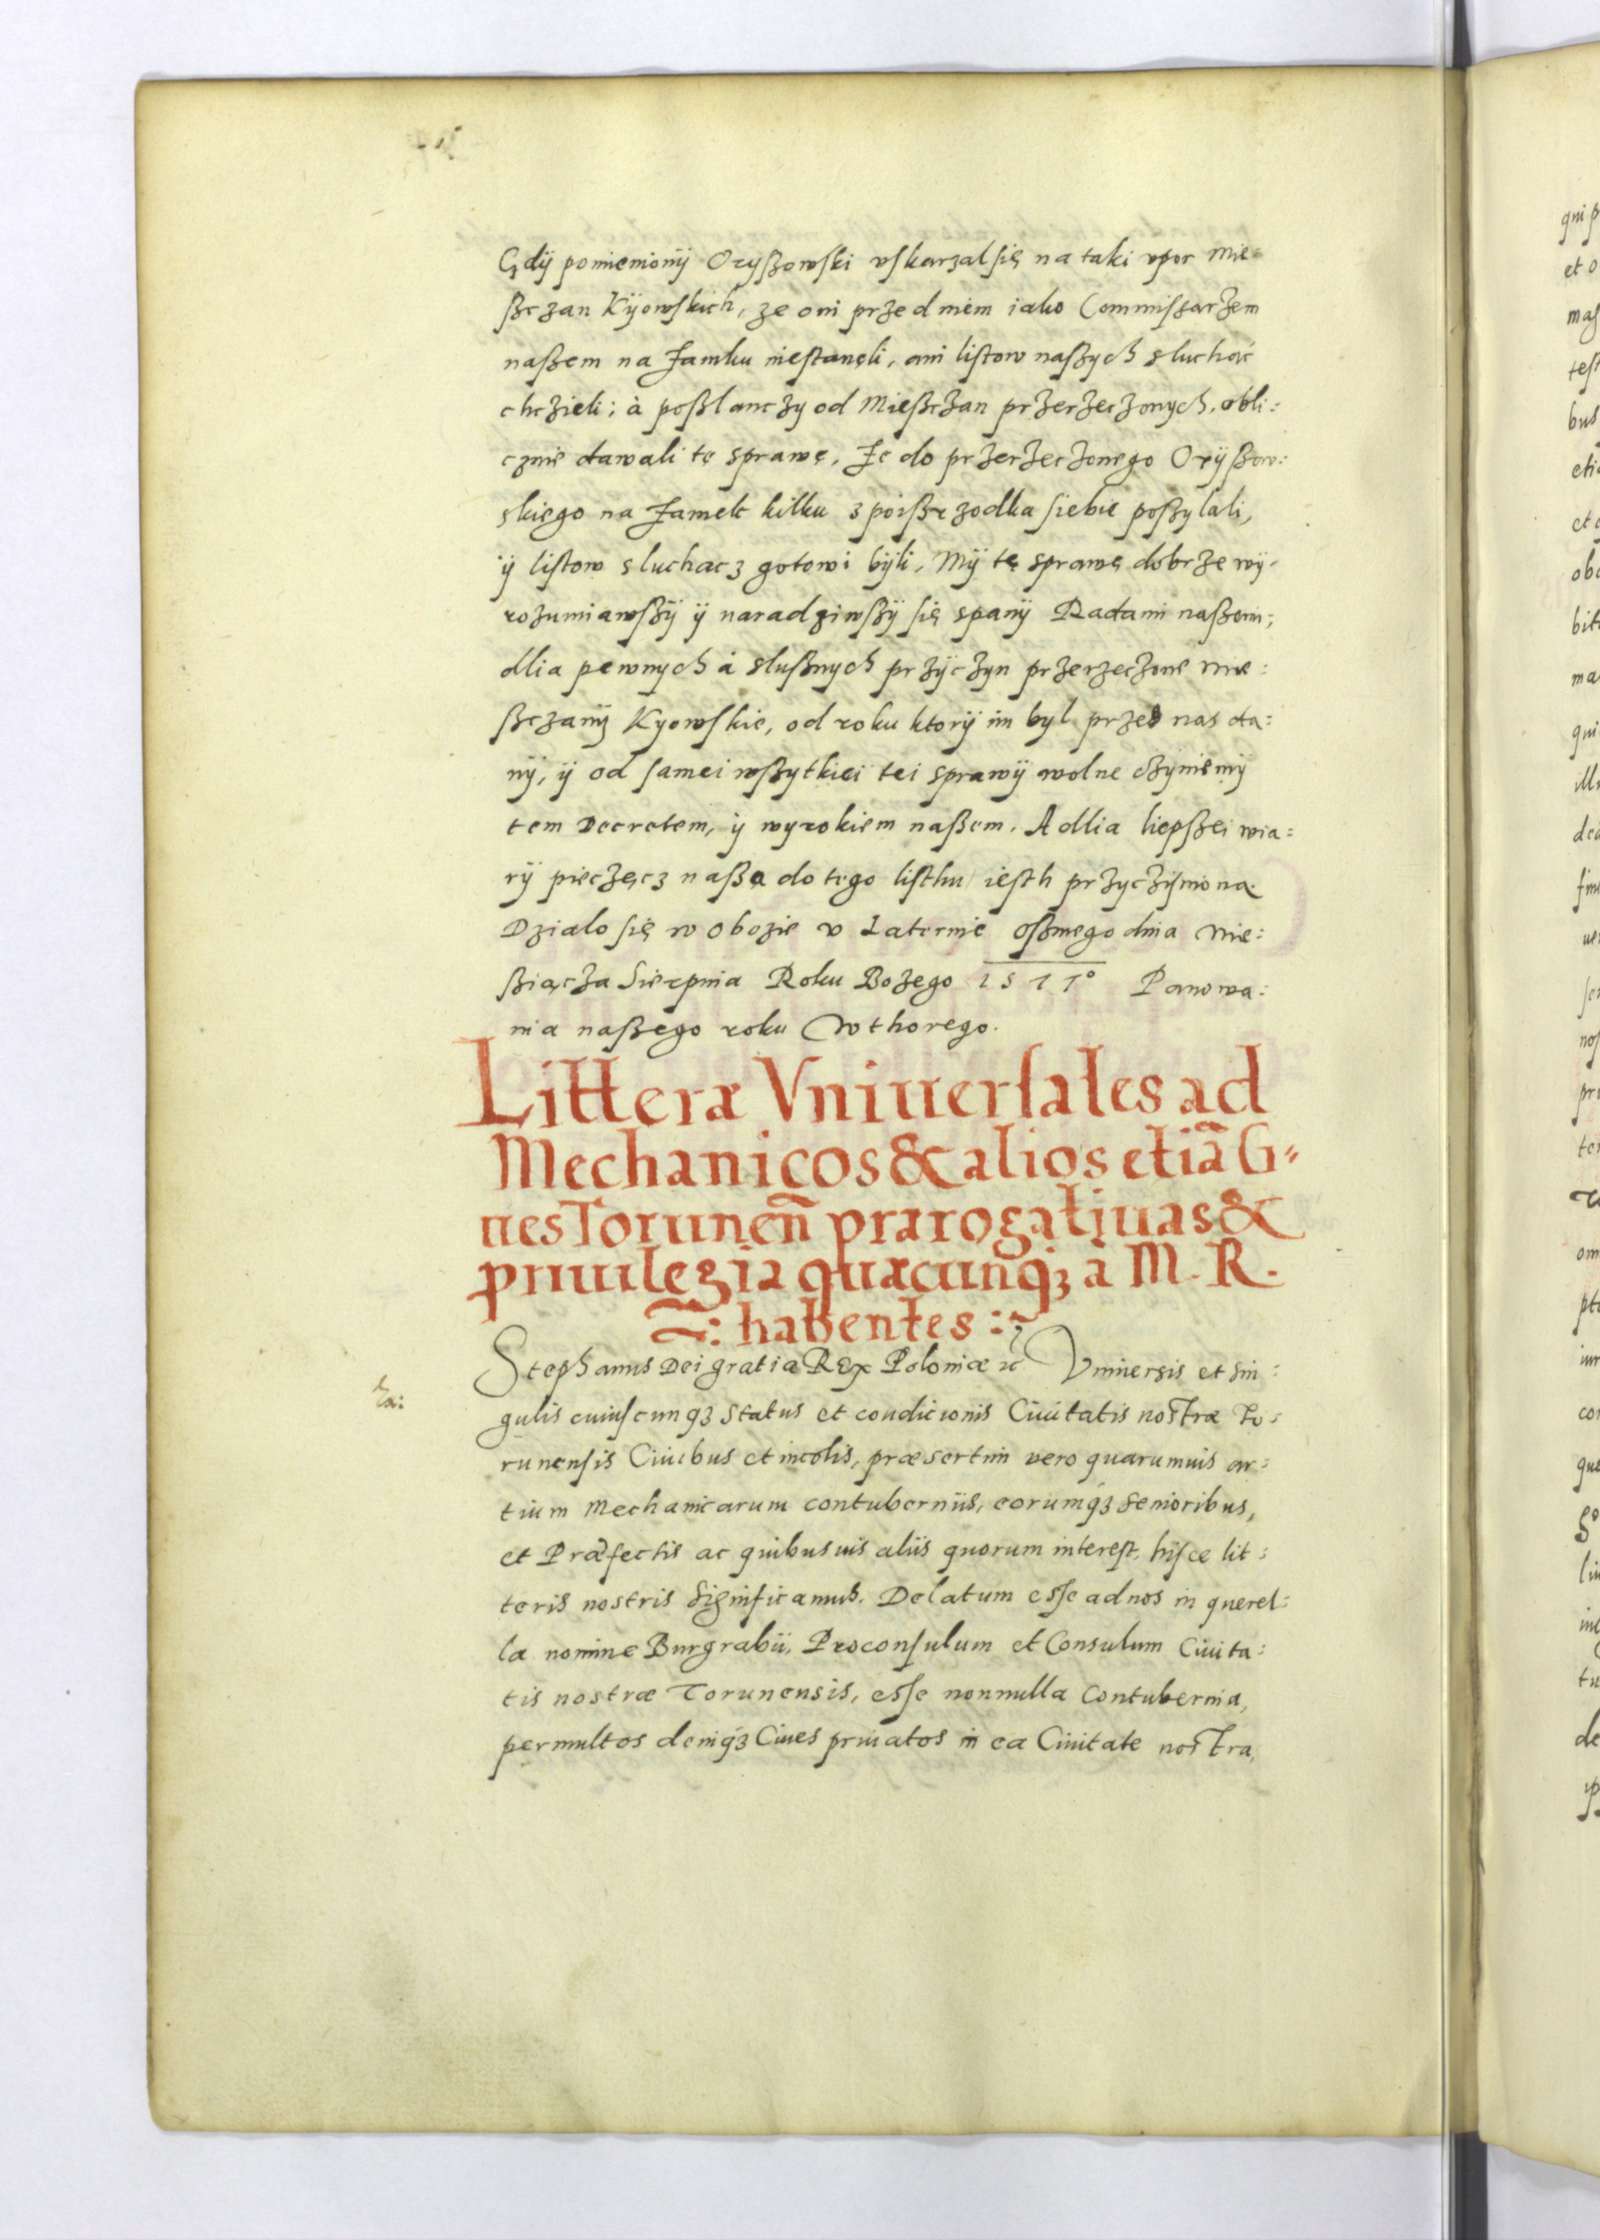 Gdÿ pomienionÿ Orÿßowſki vſkarzal ſię na taki vpor Mie=
ßczan Kÿowſkich, ze oni przed niem iako Commiſsarzem
naßem na Zamku nieſtanęli, ani liſtow naßych sluchać
chczieli; à poßlanczy od Mießczan przerzeczonych, obli:
cznie dawali tę sprawę, Ze do przerzeczonego Orÿßow:
skiego na Zamek kilku z poißrzodka ſiebie poßylali,
ÿ liſtow sluchacz gotowi bÿli, Mÿ tę sprawę dobrze wÿ-
rozumiawßÿ ÿ naradziwßÿ ſię spanÿ Radami naßemi;
dllia pewnych à slußnych przÿczyn przerzeczone mie:
ßczanÿ Kyowſkie, od roku ktorÿ im byl przes nas da:
nÿ, ÿ od ſamei wßytkiei tei sprawÿ wolne czÿniemÿ
tem Decretem, ÿ wyrokiem naßem. A dllia liepßei wia:
rÿ pieczęcz naßa do tego liſthu ieſth przyczÿniona.
Dzialo ſię w obozie v Laternie oßmego dnia Mie:
ßiącza Sierpnia Roku Bozego 1577° Panowa:
nia naßego roku Wthorego.
Litteræ Vniuerſales ad
Mechanicos & alios etiā Ci=
ues Torunen̄ prærogatiuas &
priuilegia quæcunqȝ à M. R.
: habentes :
Stephanus Dei gratia Rex Poloniæ ꝛc̃ Vniuersis et sin:
gulis cuiuſcunqȝ status et condicionis Ciuitatis nostræ To:
runensis Ciuibus et incolis, præsertim vero quarumuis ar:
tium Mechanicarum contuberniis, eorumqȝ senioribus,
et Præfectis ac quibusuis aliis quorum intereſt, hiſce lit:
teris nostris Significamus. Delatum eſse ad nos in querel:
la nomine Burgrabii, Proconſulum et Consulum Ciuita:
tis nostræ Torunensis, eſse nonnulla Contubernia,
permultos deniqȝ Ciues priuatos in ea Ciuitate nostra,